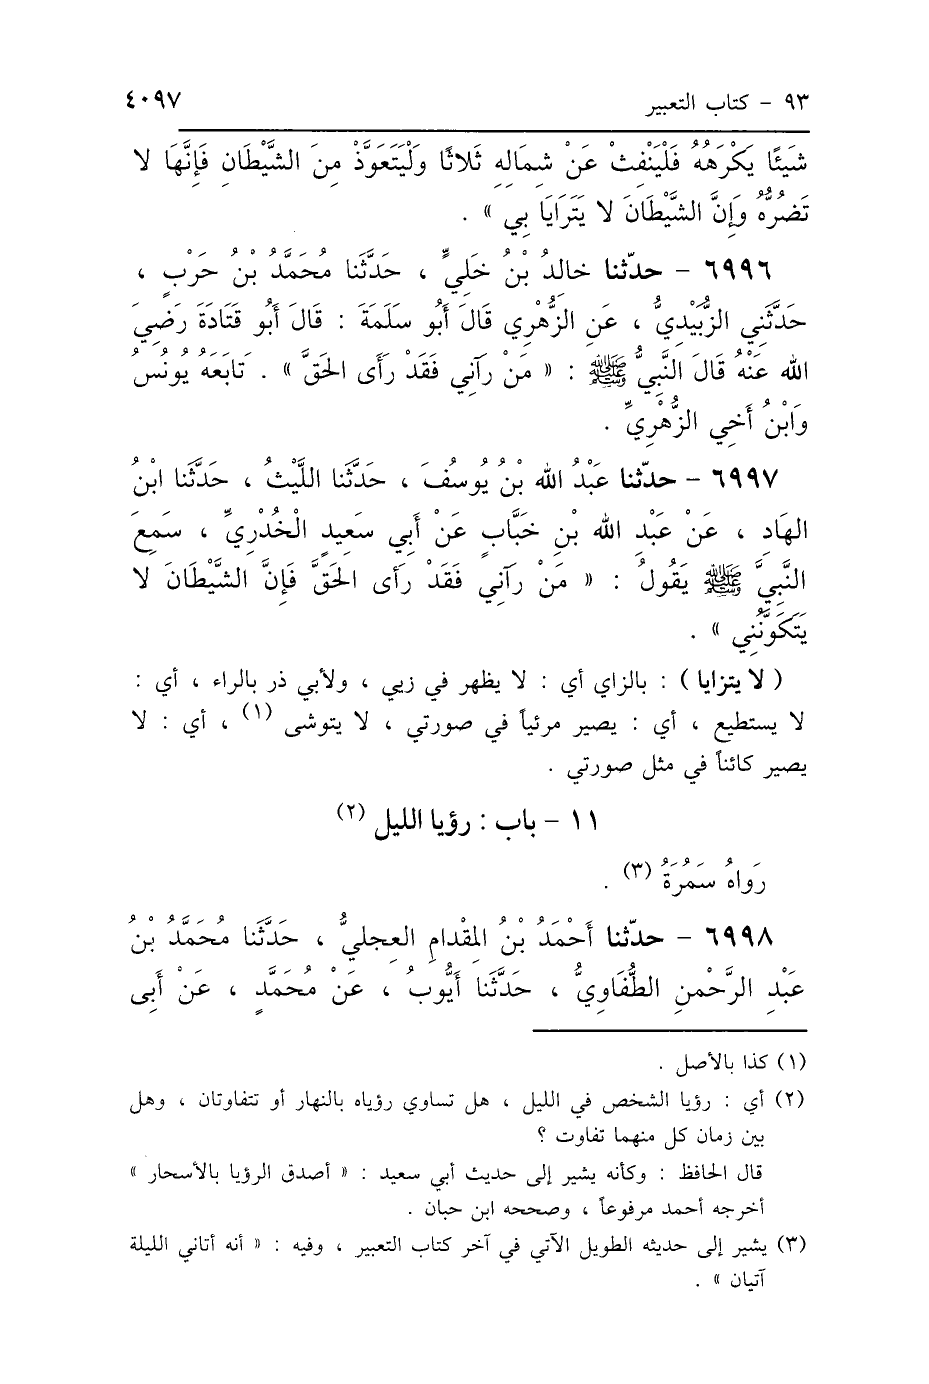 ٩٣ – كتاب التعبير ٤٠٩٧
شَيْئًا يَكْرَهُهُ فَلْيَنْفِثْ عَنْ شِمَالِهِ ثَلَاثًا وَلْيَتَعَوَّذْ مِنَ الشَّيْطَانِ فَإِنَّهَا لا
تَضُرُّهُ وَإِنَّ الشَّيْطَانَ لا يَتَرَايَا بِي » .
٦٩٩٦ – حدّثنا خالدُ بْنُ خَلِيٍّ ، حَدَّثَنا مُحَمَّدُ بْنُ حَرْبٍ ،
حَدَّثَنِي الزُّبَيْدِيُّ ، عَنِ الزُّهْرِي قَالَ أَبُو سَلَمَةَ : قَالَ أَبُو قَتَادَةَ رَضِيَ
الله عَنْهُ قَالَ النَّبِيُّ ﷺ : « مَنْ رَآنِي فَقَدْ رَأَى الحَقَّ » . تَابَعَهُ يُونُسُ
وَابْنُ أَخِي الزُّهْرِيِّ .
٦٩٩٧ – حدّثنا عَبْدُ الله بْنُ يُوسُفَ ، حَدَّثَنا اللَّيْثُ ، حَدَّثَنا ابْنُ
الهَادِ ، عَنْ عَبْدِ الله بْنِ خَبَّابٍ عَنْ أَبِي سَعِيدٍ الْخُدْرِيِّ ، سَمِعَ
النَّبِيَّ ﷺ يَقُولُ : « مَنْ رَآنِي فَقَدْ رَأَى الحَقَّ فَإِنَّ الشَّيْطَانَ لا
يَتَكَوَّنُنِي » .
( لا يتزايا ) : بالزاي أي : لا يظهر في زيي ، ولأبي ذر بالراء ، أي :
لا يستطيع ، أي : يصير مرئياً في صورتي ، لا يتوشى (١) ، أي : لا
يصير كائناً في مثل صورتي .
١١ – باب : رؤيا الليل (٢)
رَواهُ سَمُرَةُ (٣) .
٦٩٩٨ – حدّثنا أَحْمَدُ بْنُ المِقْدامِ العِجليُّ ، حَدَّثَنا مُحَمَّدُ بْنُ
عَبْدِ الرَّحْمنِ الطُّفَاوِيُّ ، حَدَّثَنا أَيُّوبُ ، عَنْ مُحَمَّدٍ ، عَنْ أَبِى
(١) كذا بالأصل .
(٢) أي : رؤيا الشخص في الليل ، هل تساوي رؤياه بالنهار أو تتفاوتان ، وهل
بين زمان كل منهما تفاوت ؟
قال الحافظ : وكأنه يشير إلى حديث أبي سعيد : « أصدق الرؤيا بالأسحار »
أخرجه أحمد مرفوعاً ، وصححه ابن حبان .
(٣) يشير إلى حديثه الطويل الآتي في آخر كتاب التعبير ، وفيه : « أنه أتاني الليلة
آتيان » .